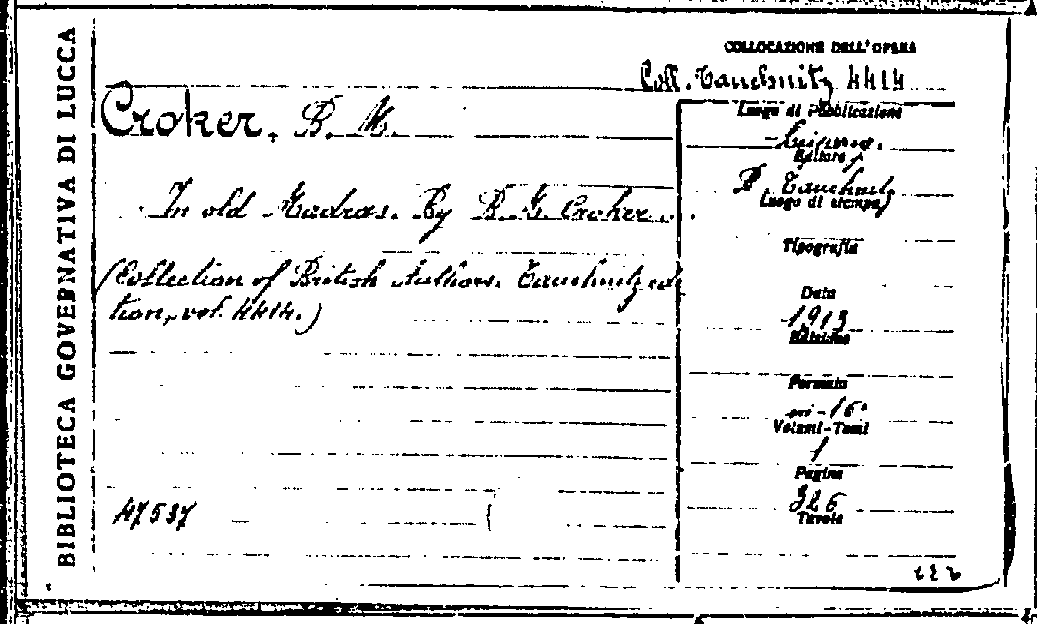 BIBLIOTECA GOVERNATIVA DI LUCCA
COLLOCAZIONE DELL'OPERA
Coll. Tauchnitz 4414
Croker, B. M.
In old Madras. By B. M. Croker.
(Collection of British Authors. Tauchnitz edi
tion, vol. 4414.)
47537
Luogo di Pubblicazione
Editore
B. Tauchnitz
Luogo di stampa
Tipografia
Data
1913
Edizione
Formato
in-16°
Volumi-Tomi
1
Pagine
326
Tavole